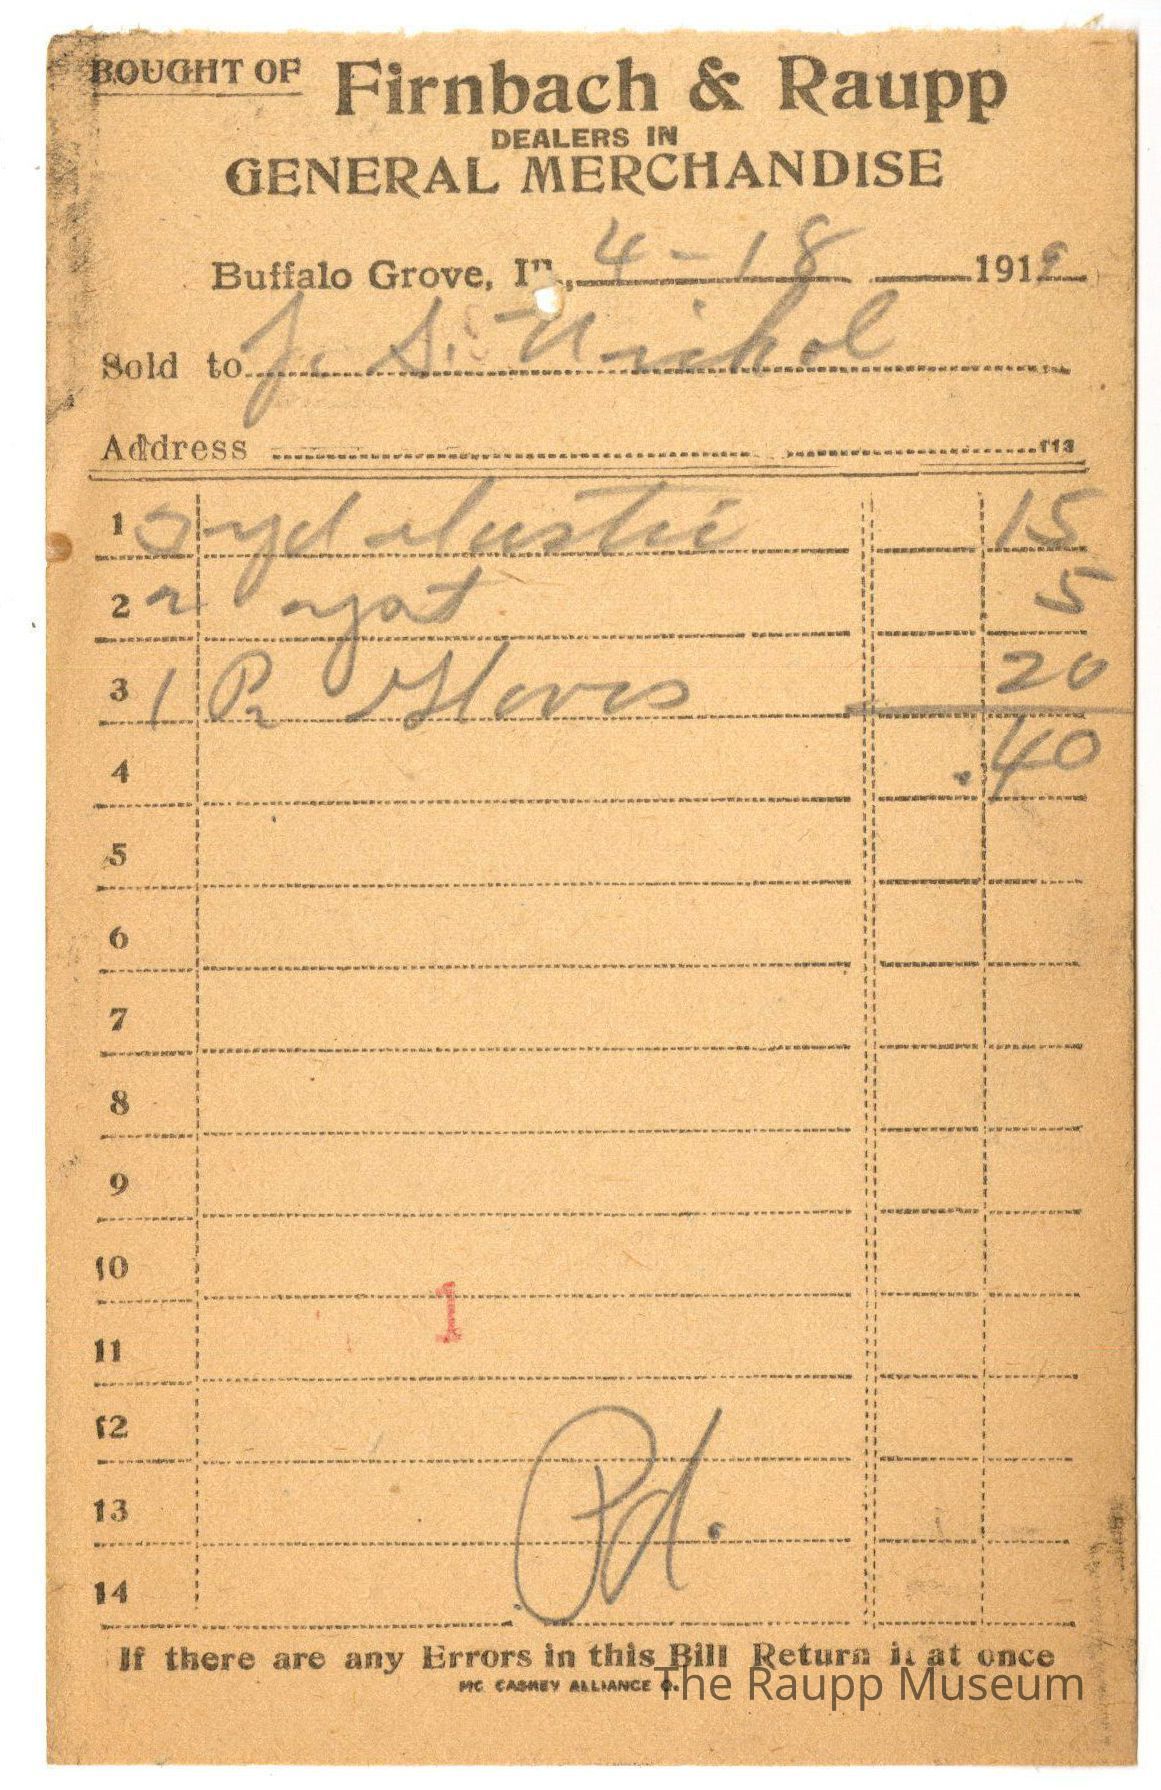 BOUGHT OF Firnbach & Raupp
DEALERS IN
GENERAL MERCHANDISE
Buffalo Grove, Ill., 4-18 1919
Sold to J. S. Nichol
Address 113
1 2 yd elastic 15
2 2 yat 5
3 1 Pr Gloves 20
4 .40
5
6
7
8
9
10
1
11
12
13 Pd.
14
If there are any Errors in this Bill Return it at once
MC CASKEY ALLIANCE O.
The Raupp Museum